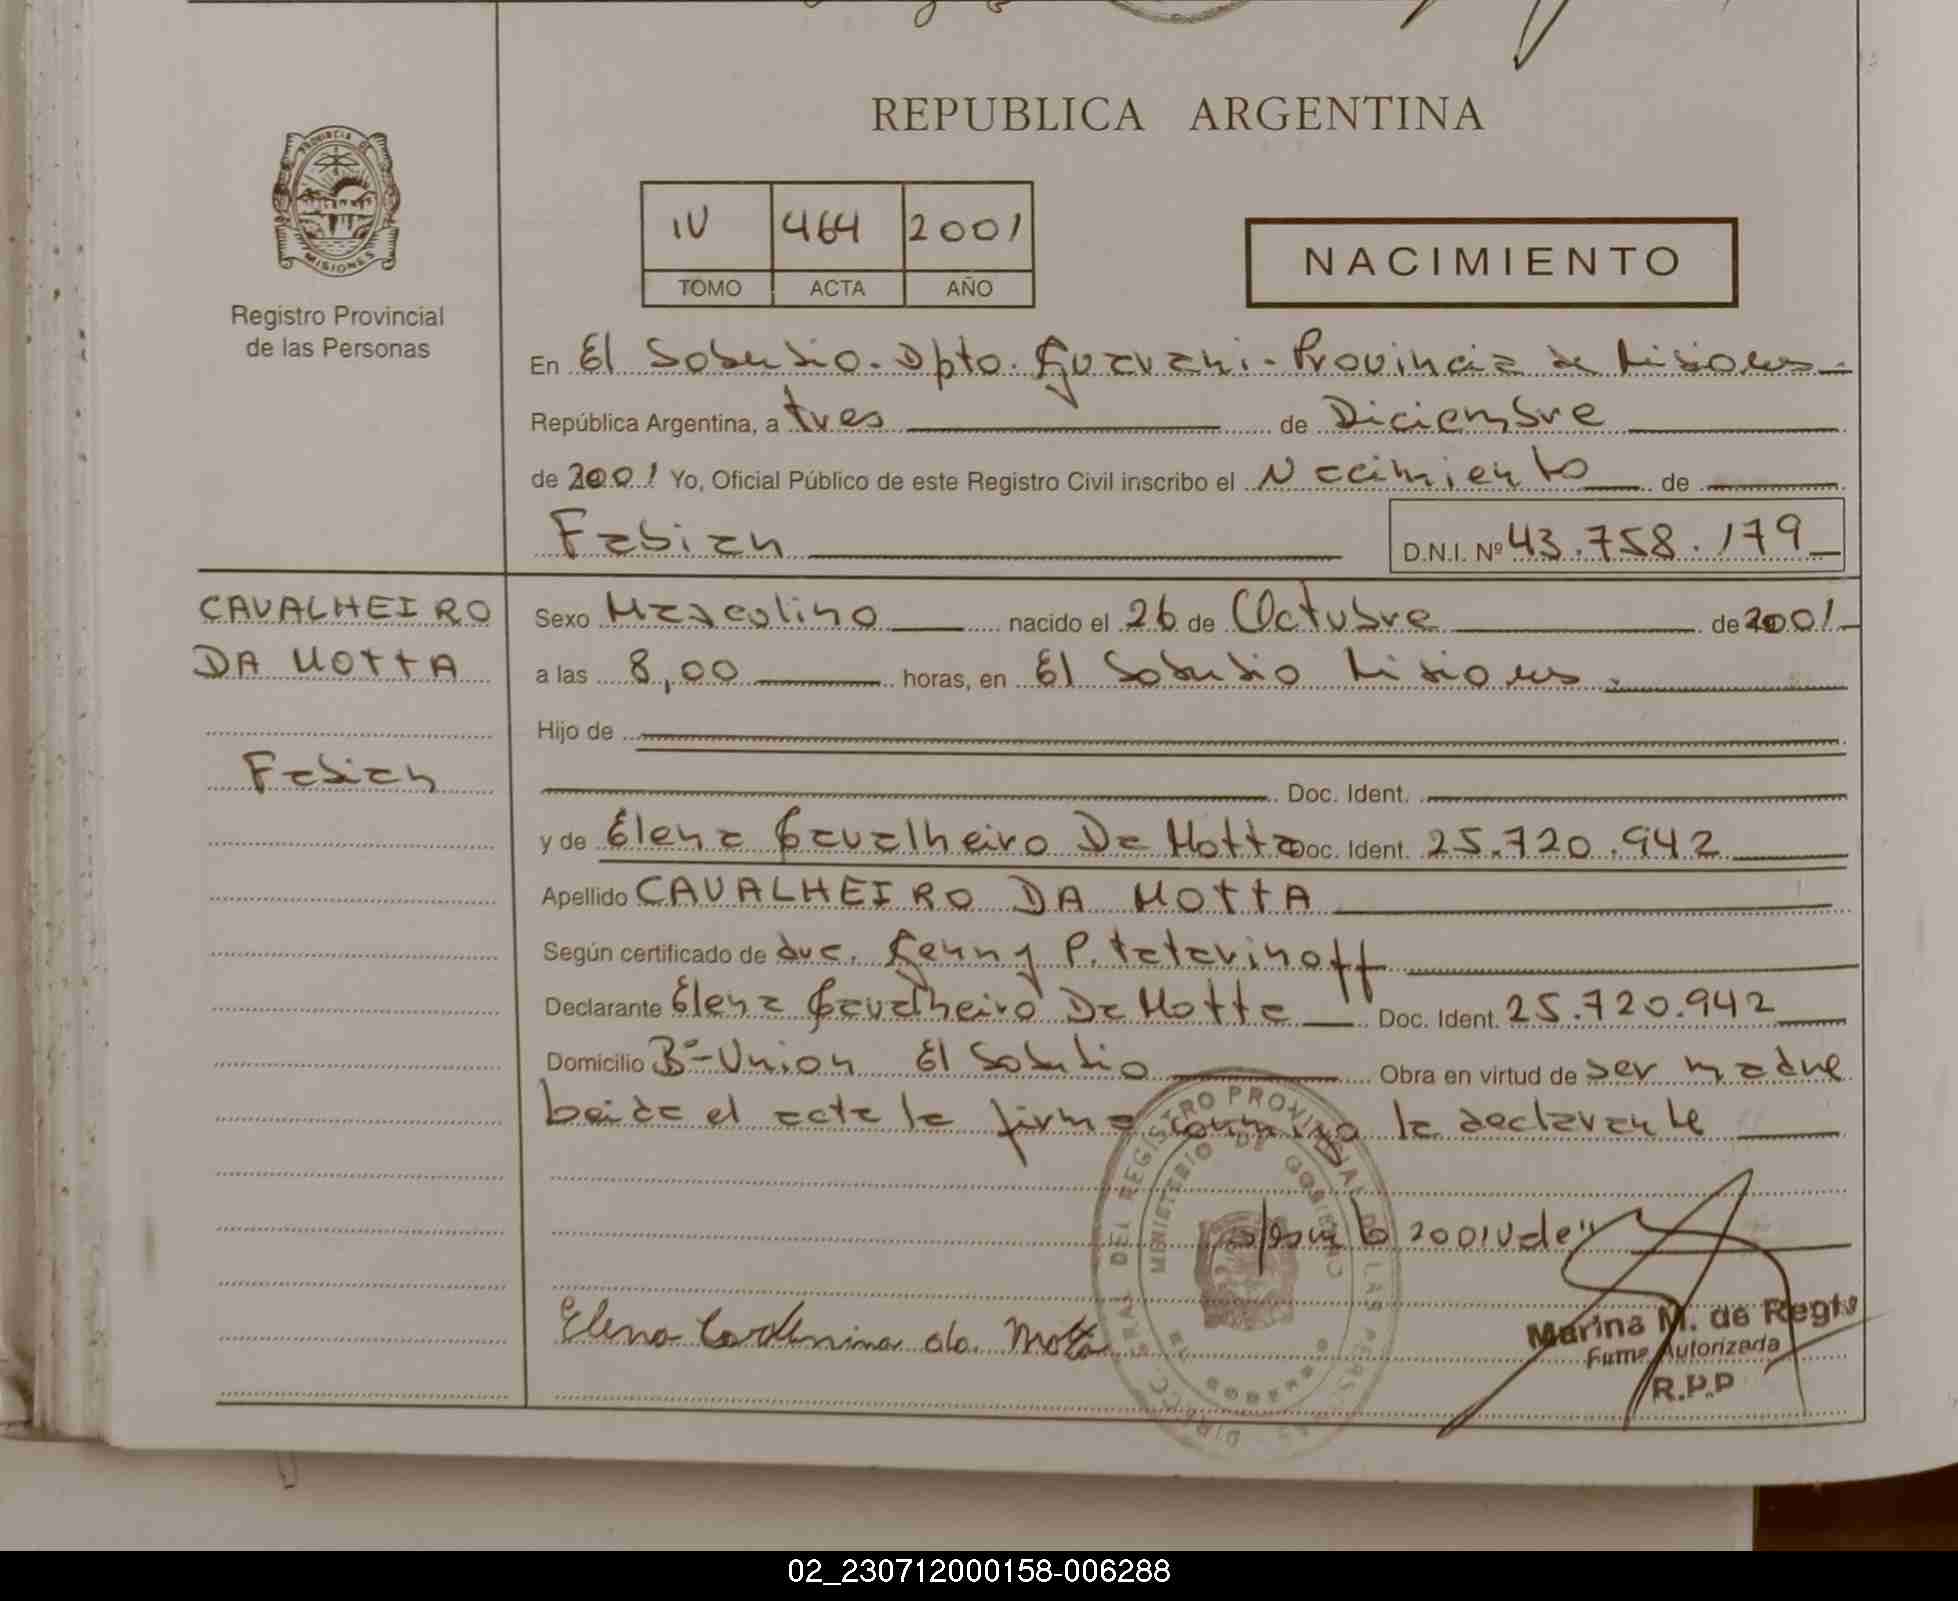 REPUBLICA ARGENTINA
PROVINCIA DE
MISIONES
Registro Provincial
de las Personas
IV 464 2001
TOMO ACTA AÑO
NACIMIENTO
En El Soberbio. Dpto. Guarani - Provincia de Misiones
República Argentina, a tres de Diciembre
de 2001 Yo, Oficial Público de este Registro Civil inscribo el Nacimiento de
Fabian D.N.I. Nº 43.758.179
CAVALHEIRO
DA MOTTA
Fabian
Sexo Masculino nacido el 26 de Octubre de 2001
a las 8,00 horas, en El Soberbio Misiones
Hijo de
Doc. Ident.
y de Elena Cavalheiro Da Motta Doc. Ident. 25.720.942
Apellido CAVALHEIRO DA MOTTA
Según certificado de dra. Genny P. Tatarinoff
Declarante Elena Cavalheiro Da Motta Doc. Ident. 25.720.942
Domicilio Bº-Union El Soberbio Obra en virtud de ser madre
Leida el acta la firma conmigo la declarante
MINISTERIO DE GOBIERNO
Elena da Motta
Marina M. de Regis
Firma Autorizada
R.P.P
02_230712000158-006288